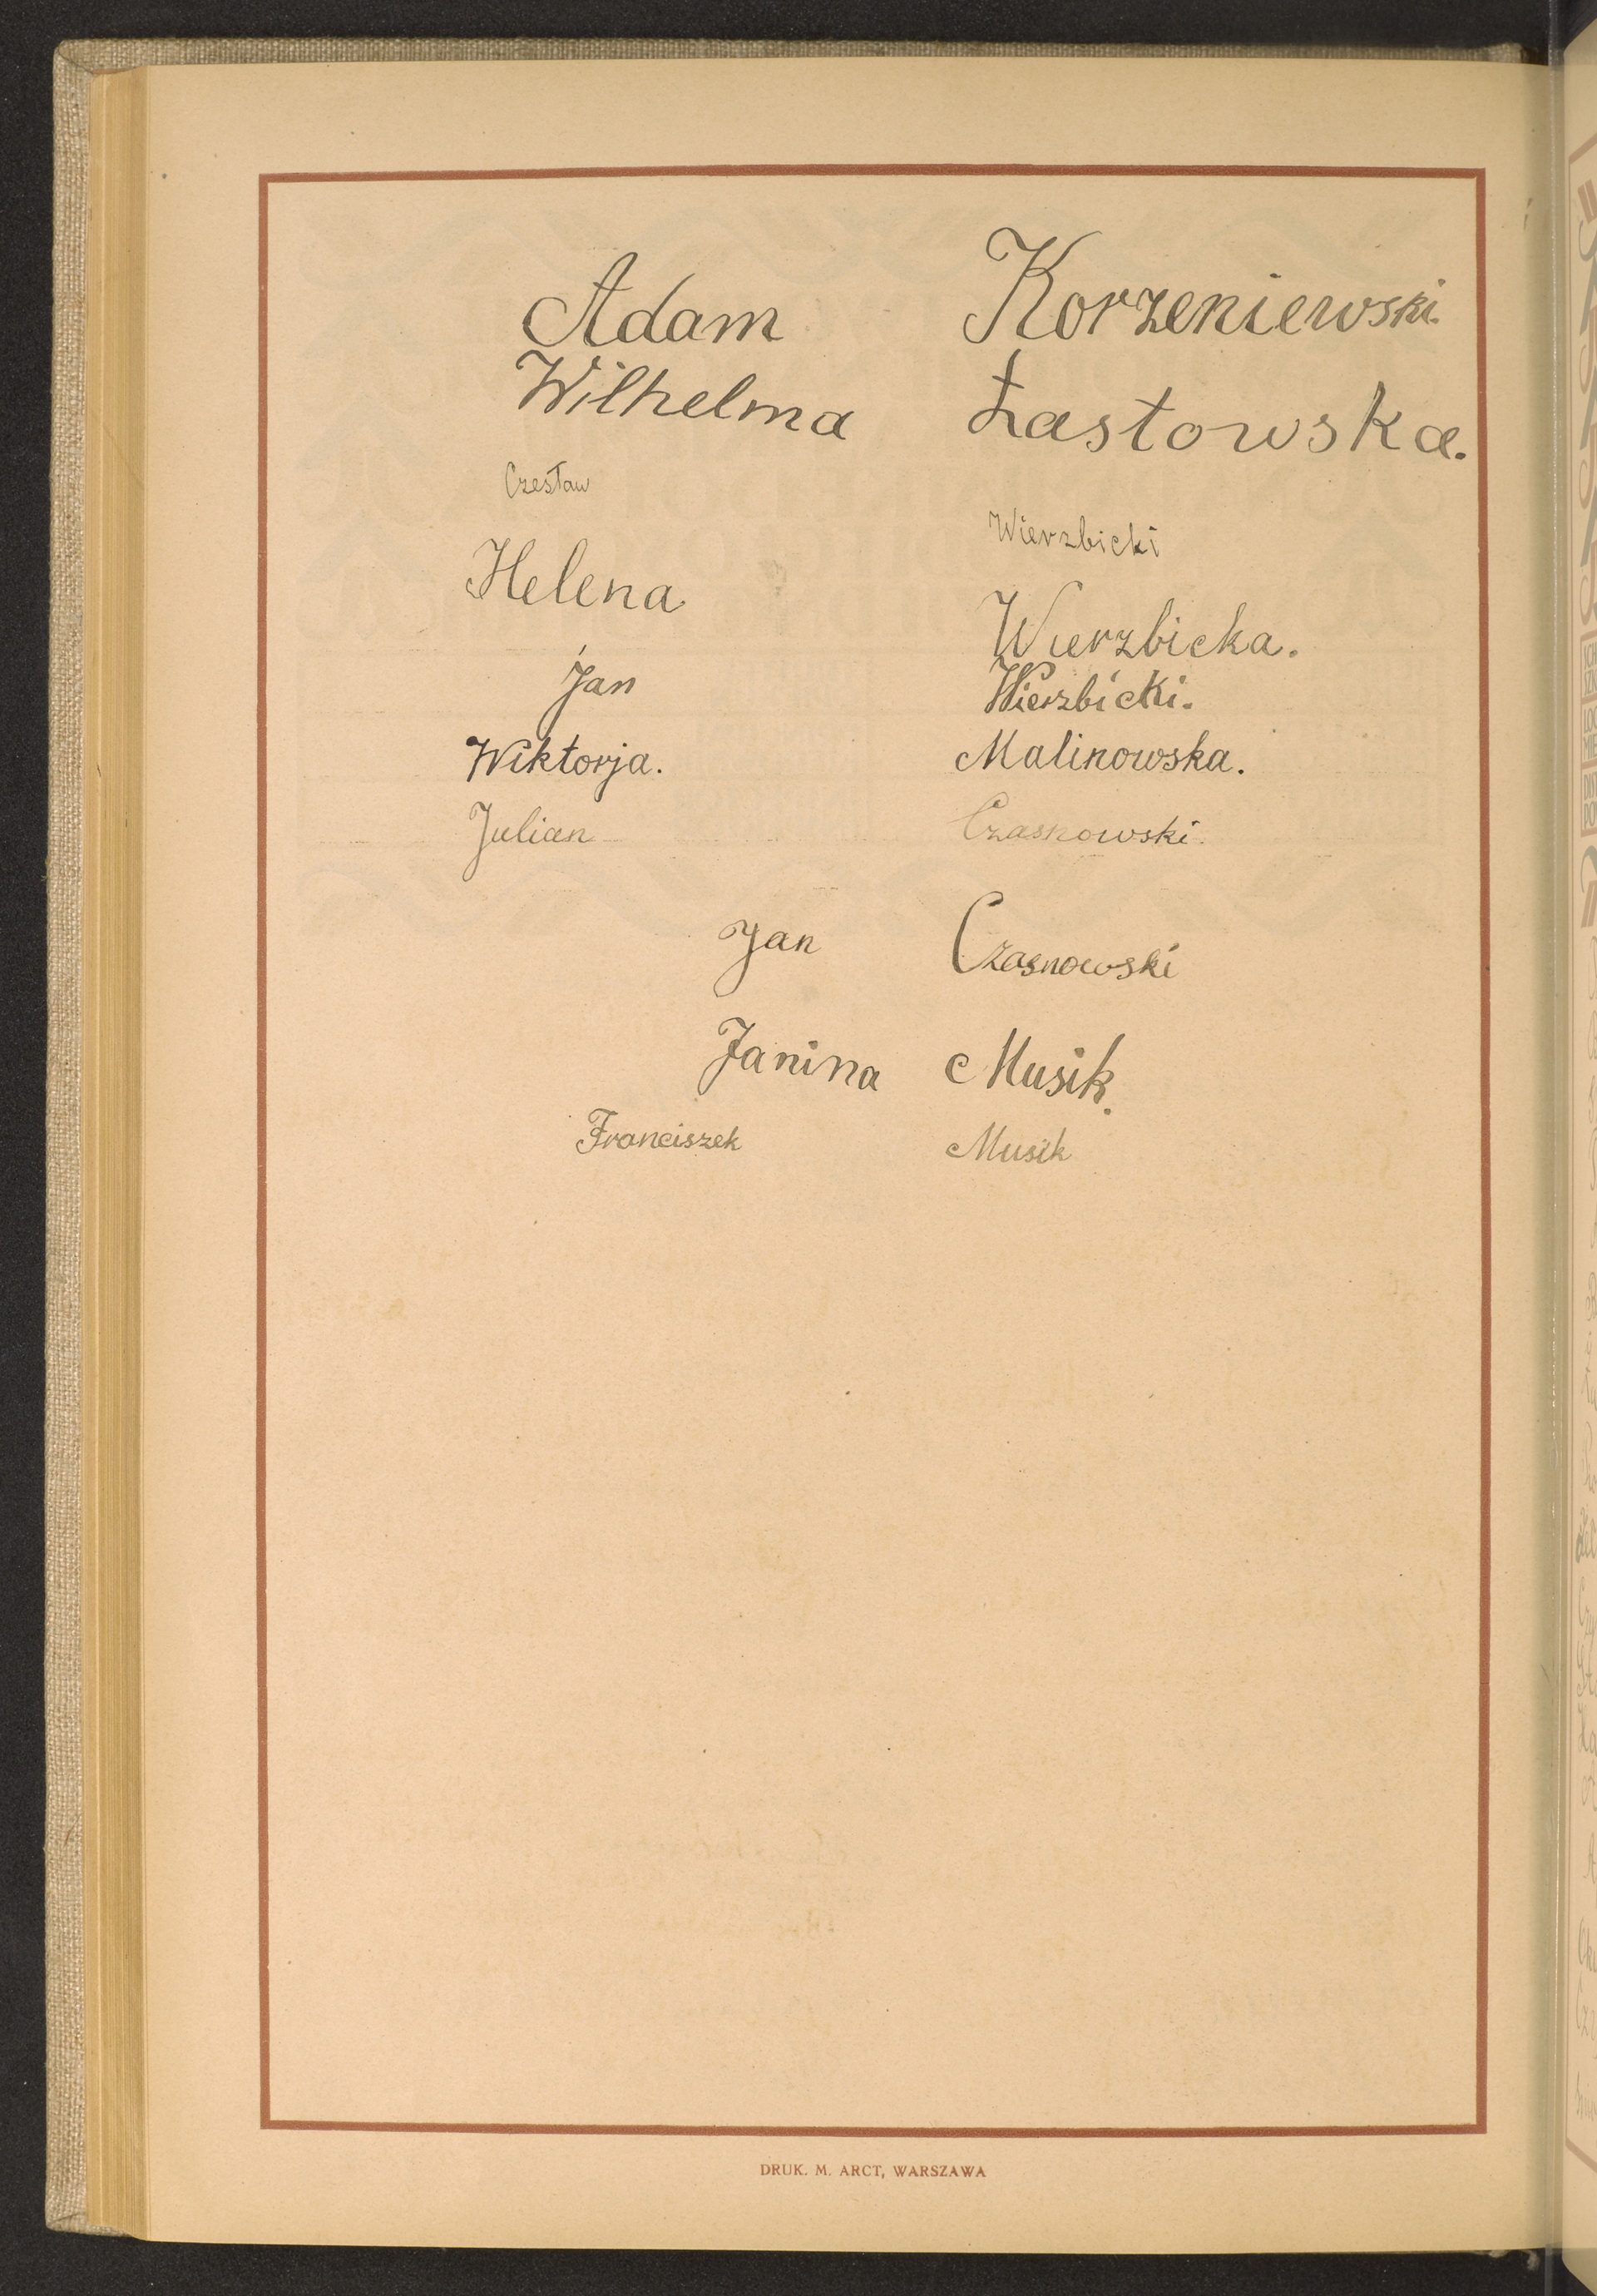 Adam Korzeniewski.
Wilhelma Łastowska.
Czesław Wierzbicki
Helena Wierzbicka.
Jan Wierzbicki.
Wiktorja. Malinowska.
Julian Czasnowski.
Jan Czasnowski
Janina Musik.
Franciszek Musik
DRUK. M. ARCT, WARSZAWA